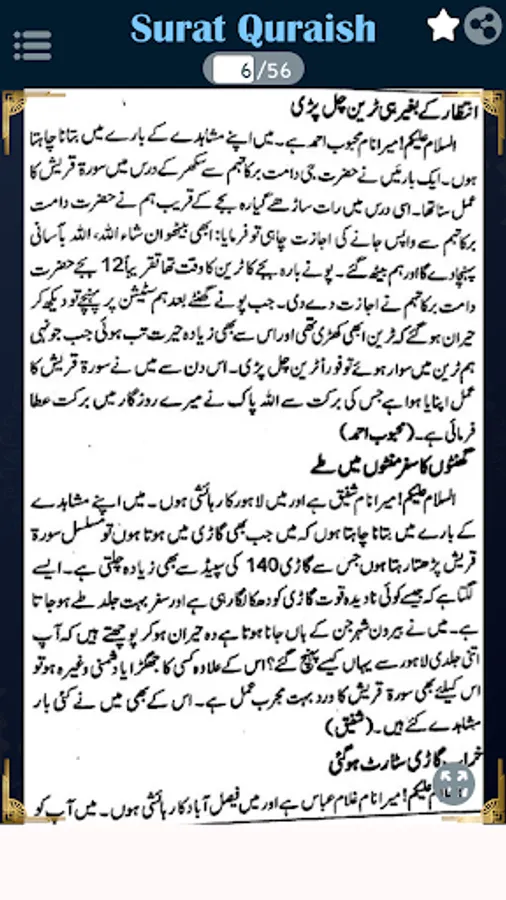 Surat Quraish
6/56
انتظار کے بغیر ہی ٹرین چل پڑی
السلام علیکم! میرا نام محبوب احمد ہے۔ میں اپنے مشاہدے کے بارے میں بتانا چاہتا
ہوں۔ ایک بار میں نے حضرت جی دامت برکاتہم سے سکھر کے درس میں سورۃ قریش کا
عمل سنا تھا۔ اسی درس میں رات ساڑھے گیارہ بجے کے قریب ہم نے حضرت دامت
برکاتہم سے واپس جانے کی اجازت چاہی تو فرمایا: ابھی بیٹھو ان شاء اللہ، اللہ بآسانی
پہنچا دے گا اور ہم بیٹھ گئے۔ پونے بارہ بجے کا ٹرین کا وقت تھا تقریباً 12 بجے حضرت
دامت برکاتہم نے اجازت دے دی۔ جب پونے گھنٹے بعد ہم سٹیشن پر پہنچے تو دیکھ کر
حیران ہو گئے کہ ٹرین ابھی کھڑی تھی اور اس سے بھی زیادہ حیرت تب ہوئی جب جونہی
ہم ٹرین میں سوار ہوئے تو فوراً ٹرین چل پڑی۔ اس دن سے میں نے سورۃ قریش کا
عمل اپنایا ہوا ہے جس کی برکت سے اللہ پاک نے میرے روزگار میں برکت عطا
فرمائی ہے۔ (محبوب احمد)
گھنٹوں کا سفر منٹوں میں طے
السلام علیکم! میرا نام شفیق ہے اور میں لاہور کا رہائشی ہوں۔ میں اپنے مشاہدے
کے بارے میں بتانا چاہتا ہوں کہ میں جب بھی گاڑی میں ہوتا ہوں تو مسلسل سورۃ
قریش پڑھتا رہتا ہوں جس سے گاڑی 140 کی سپیڈ سے بھی زیادہ چلتی ہے۔ ایسے
لگتا ہے کہ جیسے کوئی نادیدہ قوت گاڑی کو دھکا لگا رہی ہے اور سفر بہت جلد طے ہو جاتا
ہے۔ میں نے بیرون شہر جن کے ہاں جانا ہوتا ہے وہ حیران ہو کر پوچھتے ہیں کہ آپ
اتنی جلدی لاہور سے یہاں کیسے پہنچ گئے؟ اس کے علاوہ کسی کا جھگڑا یا دشمنی وغیرہ ہو تو
اس کیلئے بھی سورۃ قریش کا ورد بہت مجرب عمل ہے۔ اس کے بھی میں نے کئی بار
مشاہدے کئے ہیں۔ (شفیق)
خراب گاڑی سٹارٹ ہو گئی
علیکم! میرا نام غلام عباس ہے اور میں فیصل آباد کا رہائشی ہوں۔ میں آپ کو